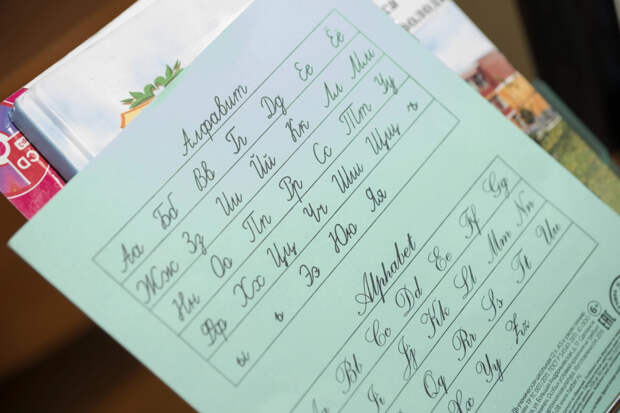 Алфавит
Аа Бб Вв Гг Дд Ее Ёё
Жж Зз Ии Йй Кк Лл Мм
Нн Оо Пп Рр Сс Тт Уу
Фф Хх Цц Чч Шш Щщ ъ
ы ь Ээ Юю Яя
Alphabet
Bb Cc Dd Ee Ff Gg
Ii Jj Kk Ll Mm Nn
Qq Rr Ss Tt Uu
Xx Yy Zz
CD
6+
EAC